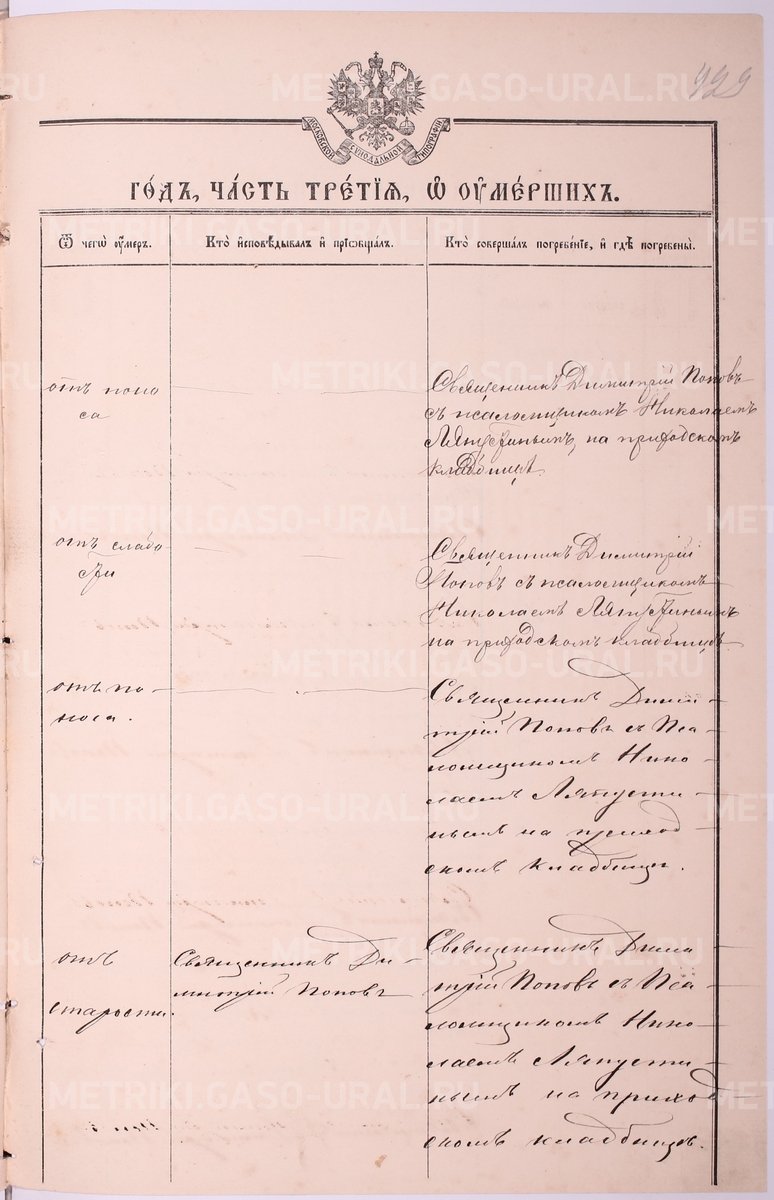 929
МОСКОВСКОЙ СѴНОДАЛЬНОЙ ТИПОГРАФІИ
ГО́ДЪ, ЧА́СТЬ ТРЕ́ТІѦ, Ѡ҆ ОУ҆МЕ́РШИХЪ.
Ѿ чегѡ̀ оу҆́мер.
Кто̀ и҆сповѣ́дывалъ и҆ прїѻбща́лъ.
Кто̀ соверша́лъ погребе́нїе, и҆ гдѣ̀ погребены̀.
отъ поно
са
Священникъ Димитрій Поповъ
съ псаломщикомъ Николаемъ
Ляпустинымъ, на приходскомъ
кладбищѣ.
отъ слабо
сти
Священникъ Димитрій
Поповъ съ псаломщикомъ
Николаемъ Ляпустинымъ
на приходскомъ кладбищѣ
отъ по-
носа.
Священникъ Дими-
трій Поповъ съ Пса-
ломщикомъ Нико-
лаемъ Ляпусти-
нымъ на приход-
скомъ кладбищѣ.
отъ
старости.
Священникъ Ди-
митрій Поповъ
Священникъ Дими
трій Поповъ съ Пса-
ломщикомъ Нико-
лаемъ Ляпусти-
нымъ на приход-
скомъ кладбищѣ.
METRIKI.GASO-URAL.RU